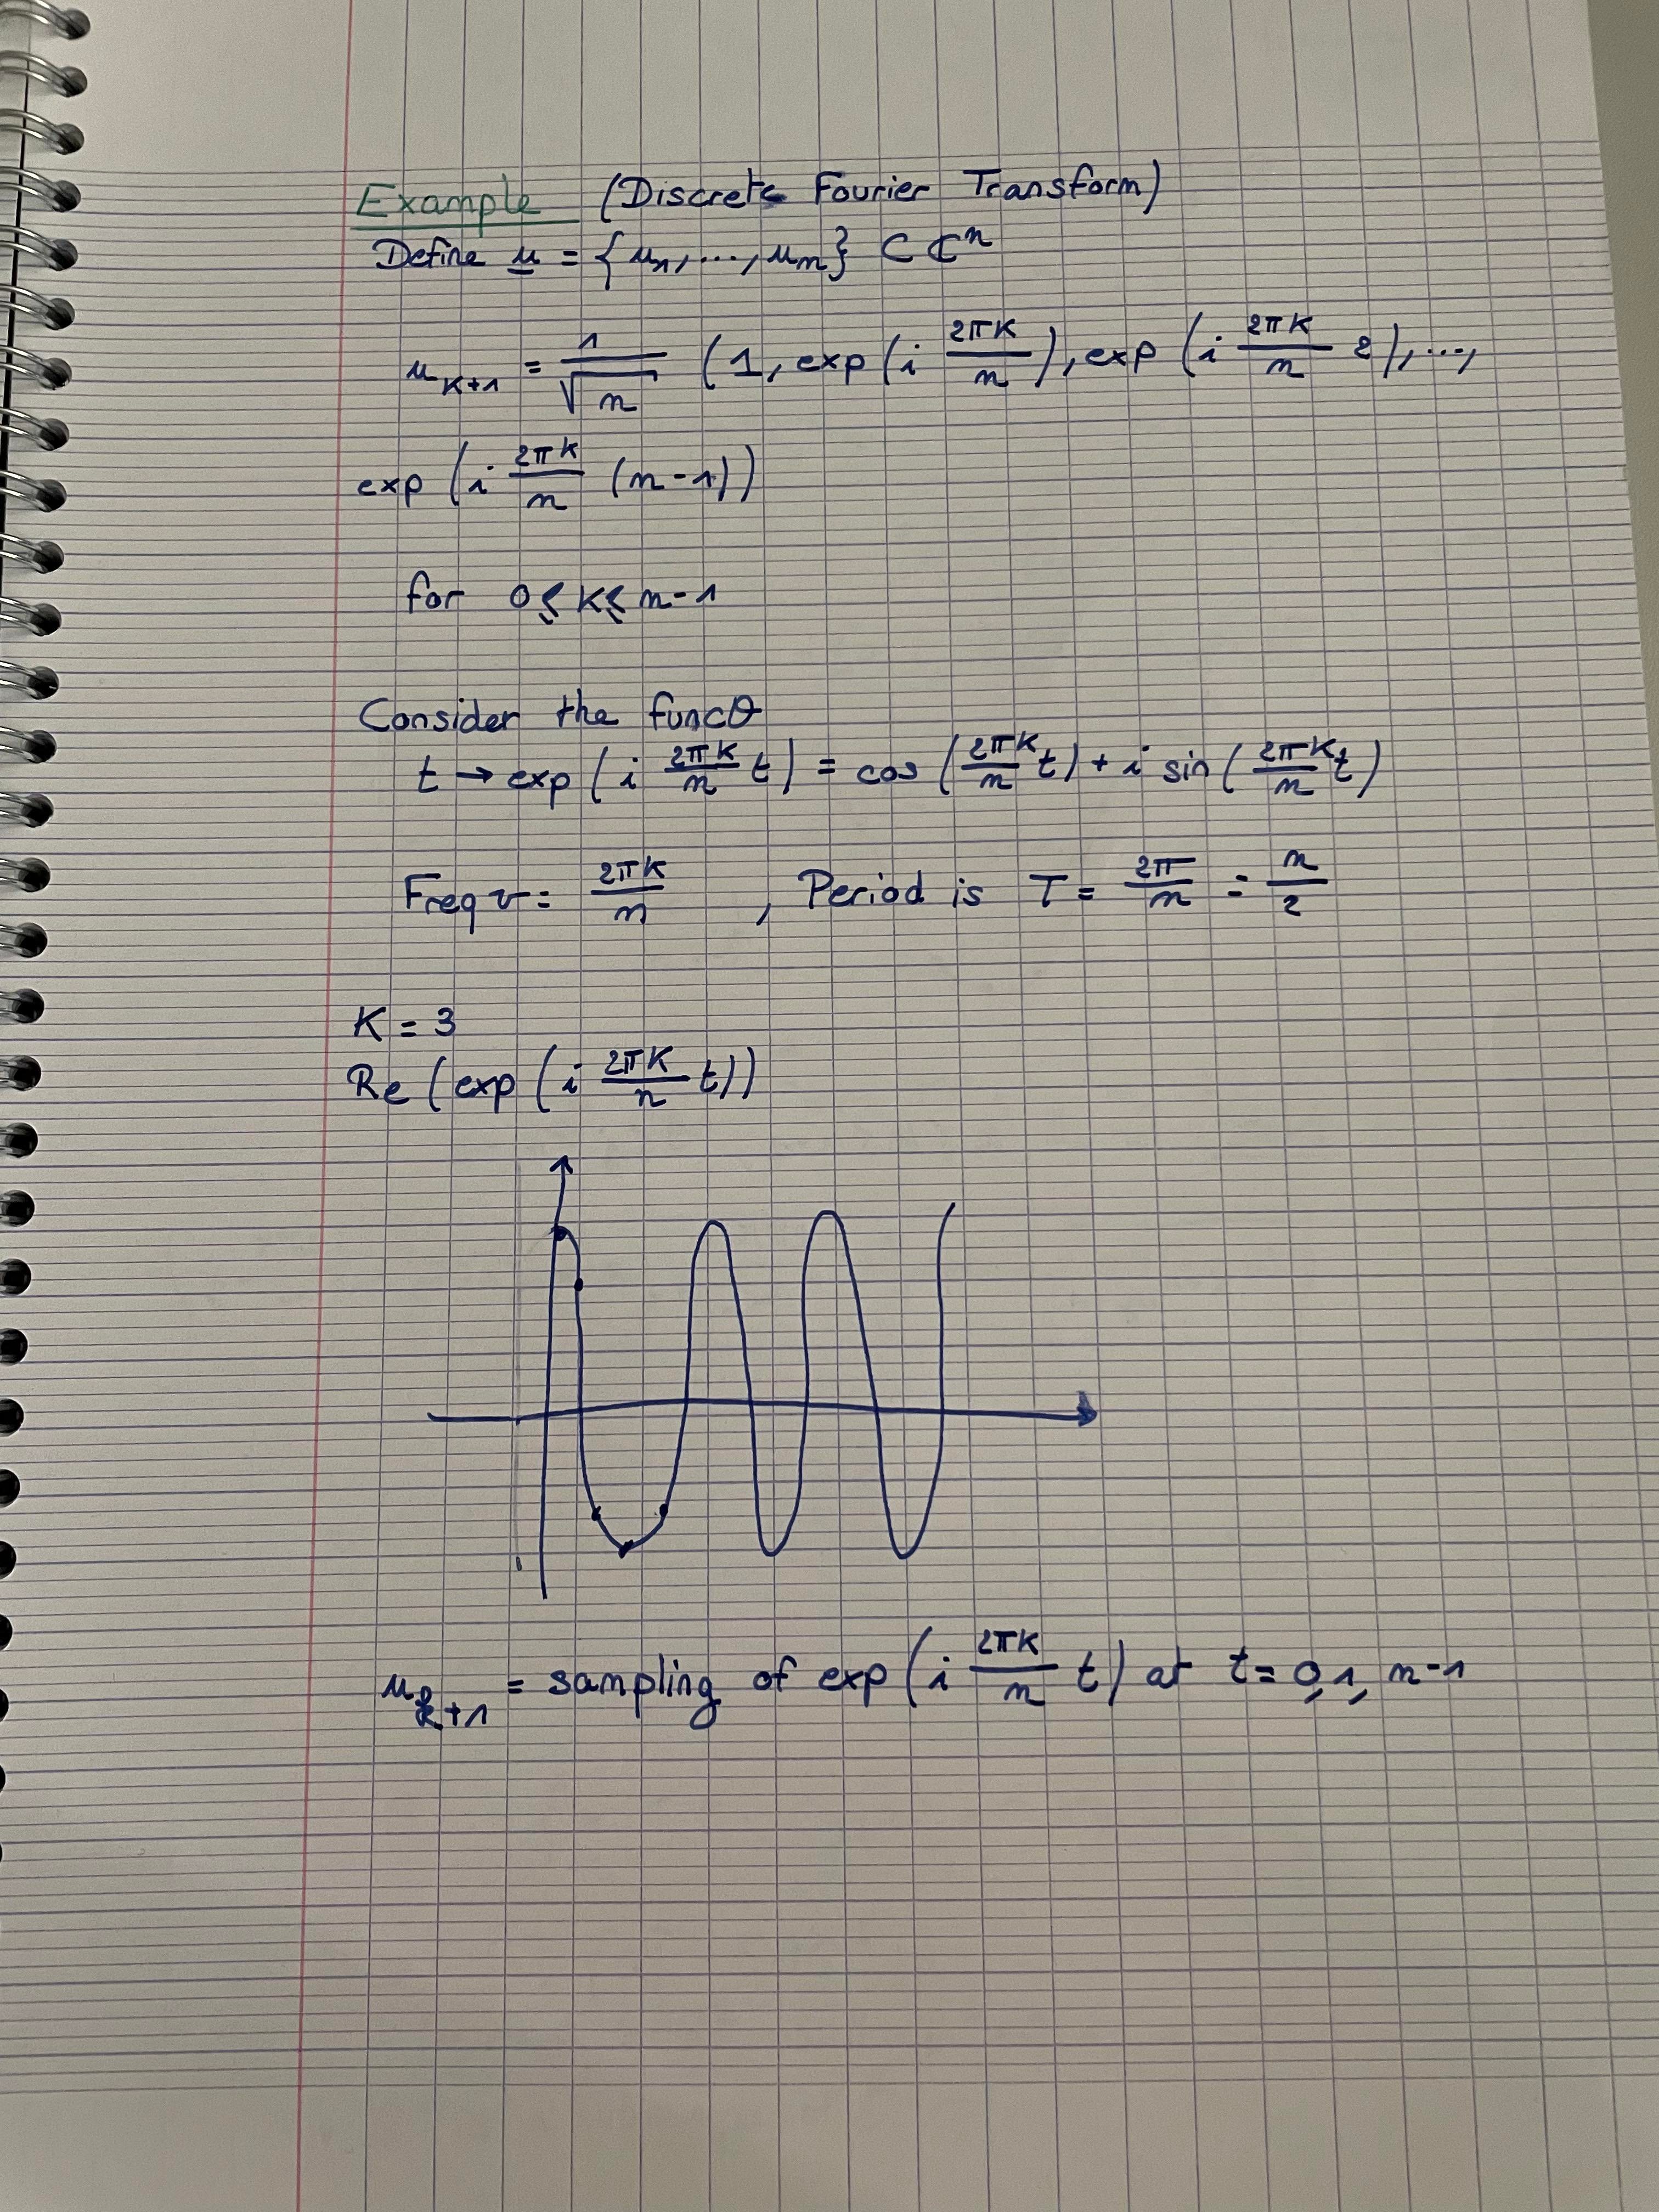 Example (Discrete Fourier Transform)
Define u = {u₁, ..., uₙ} ⊂ ℂⁿ
u_{K+1} = 1/√n (1, exp(i 2πK/n), exp(i 2πK/n 2), ...,
exp(i 2πK/n (n-1))
for 0 ≤ K ≤ n-1
Consider the funcθ
t → exp(i 2πK/n t) = cos(2πK/n t) + i sin(2πK/n t)
Freq v = 2πK/n , Period is T = 2π/n = n/2
K = 3
Re(exp(i 2πK/n t))
u_{k+1} = sampling of exp(i 2πK/n t) at t = 0, 1, n-1